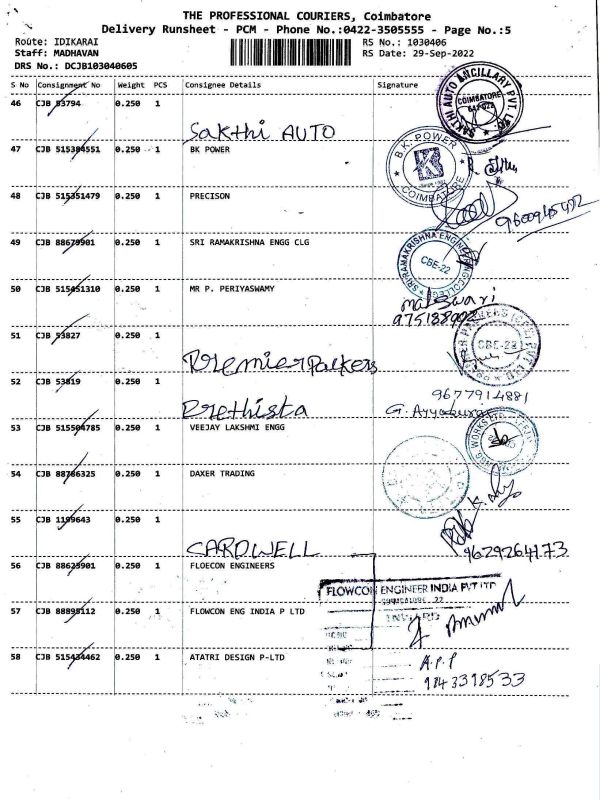 THE PROFESSIONAL COURIERS, Coimbatore
Delivery Runsheet - PCM - Phone No.:0422-3505555 - Page No.:5
Route: IDIKARAI RS No.: 1030406
Staff: MADHAVAN RS Date: 29-Sep-2022
DRS No.: DCJB103040605
S No Consignment No Weight PCS Consignee Details Signature
46 CJB 53794 0.250 1
Sakthi AUTO
SAKTHI AUTO ANCILLARY PVT. LTD
COIMBATORE
47 CJB 515384551 0.250 1 BK POWER
B.K. POWER
COIMBATORE
48 CJB 515351479 0.250 1 PRECISON
9600945452
49 CJB 88679901 0.250 1 SRI RAMAKRISHNA ENGG CLG
SRI RAMAKRISHNA ENGINEERING COLLEGE
CBE-22
50 CJB 515451310 0.250 1 MR P. PERIYASWAMY
51 CJB 53827 0.250 1
Premier Packers
CBE-
52 CJB 53819 0.250 1
Prethista
9677914881
G.
53 CJB 515504785 0.250 1 VEEJAY LAKSHMI ENGG
54 CJB 88786325 0.250 1 DAXER TRADING
55 CJB 1199643 0.250 1
CARDWELL
9629264173
56 CJB 88623901 0.250 1 FLOECON ENGINEERS
FLOWCON ENGINEER INDIA PVT LTD
57 CJB 88895112 0.250 1 FLOWCON ENG INDIA P LTD
58 CJB 515434462 0.250 1 ATATRI DESIGN P-LTD
A.P.P
9843318533